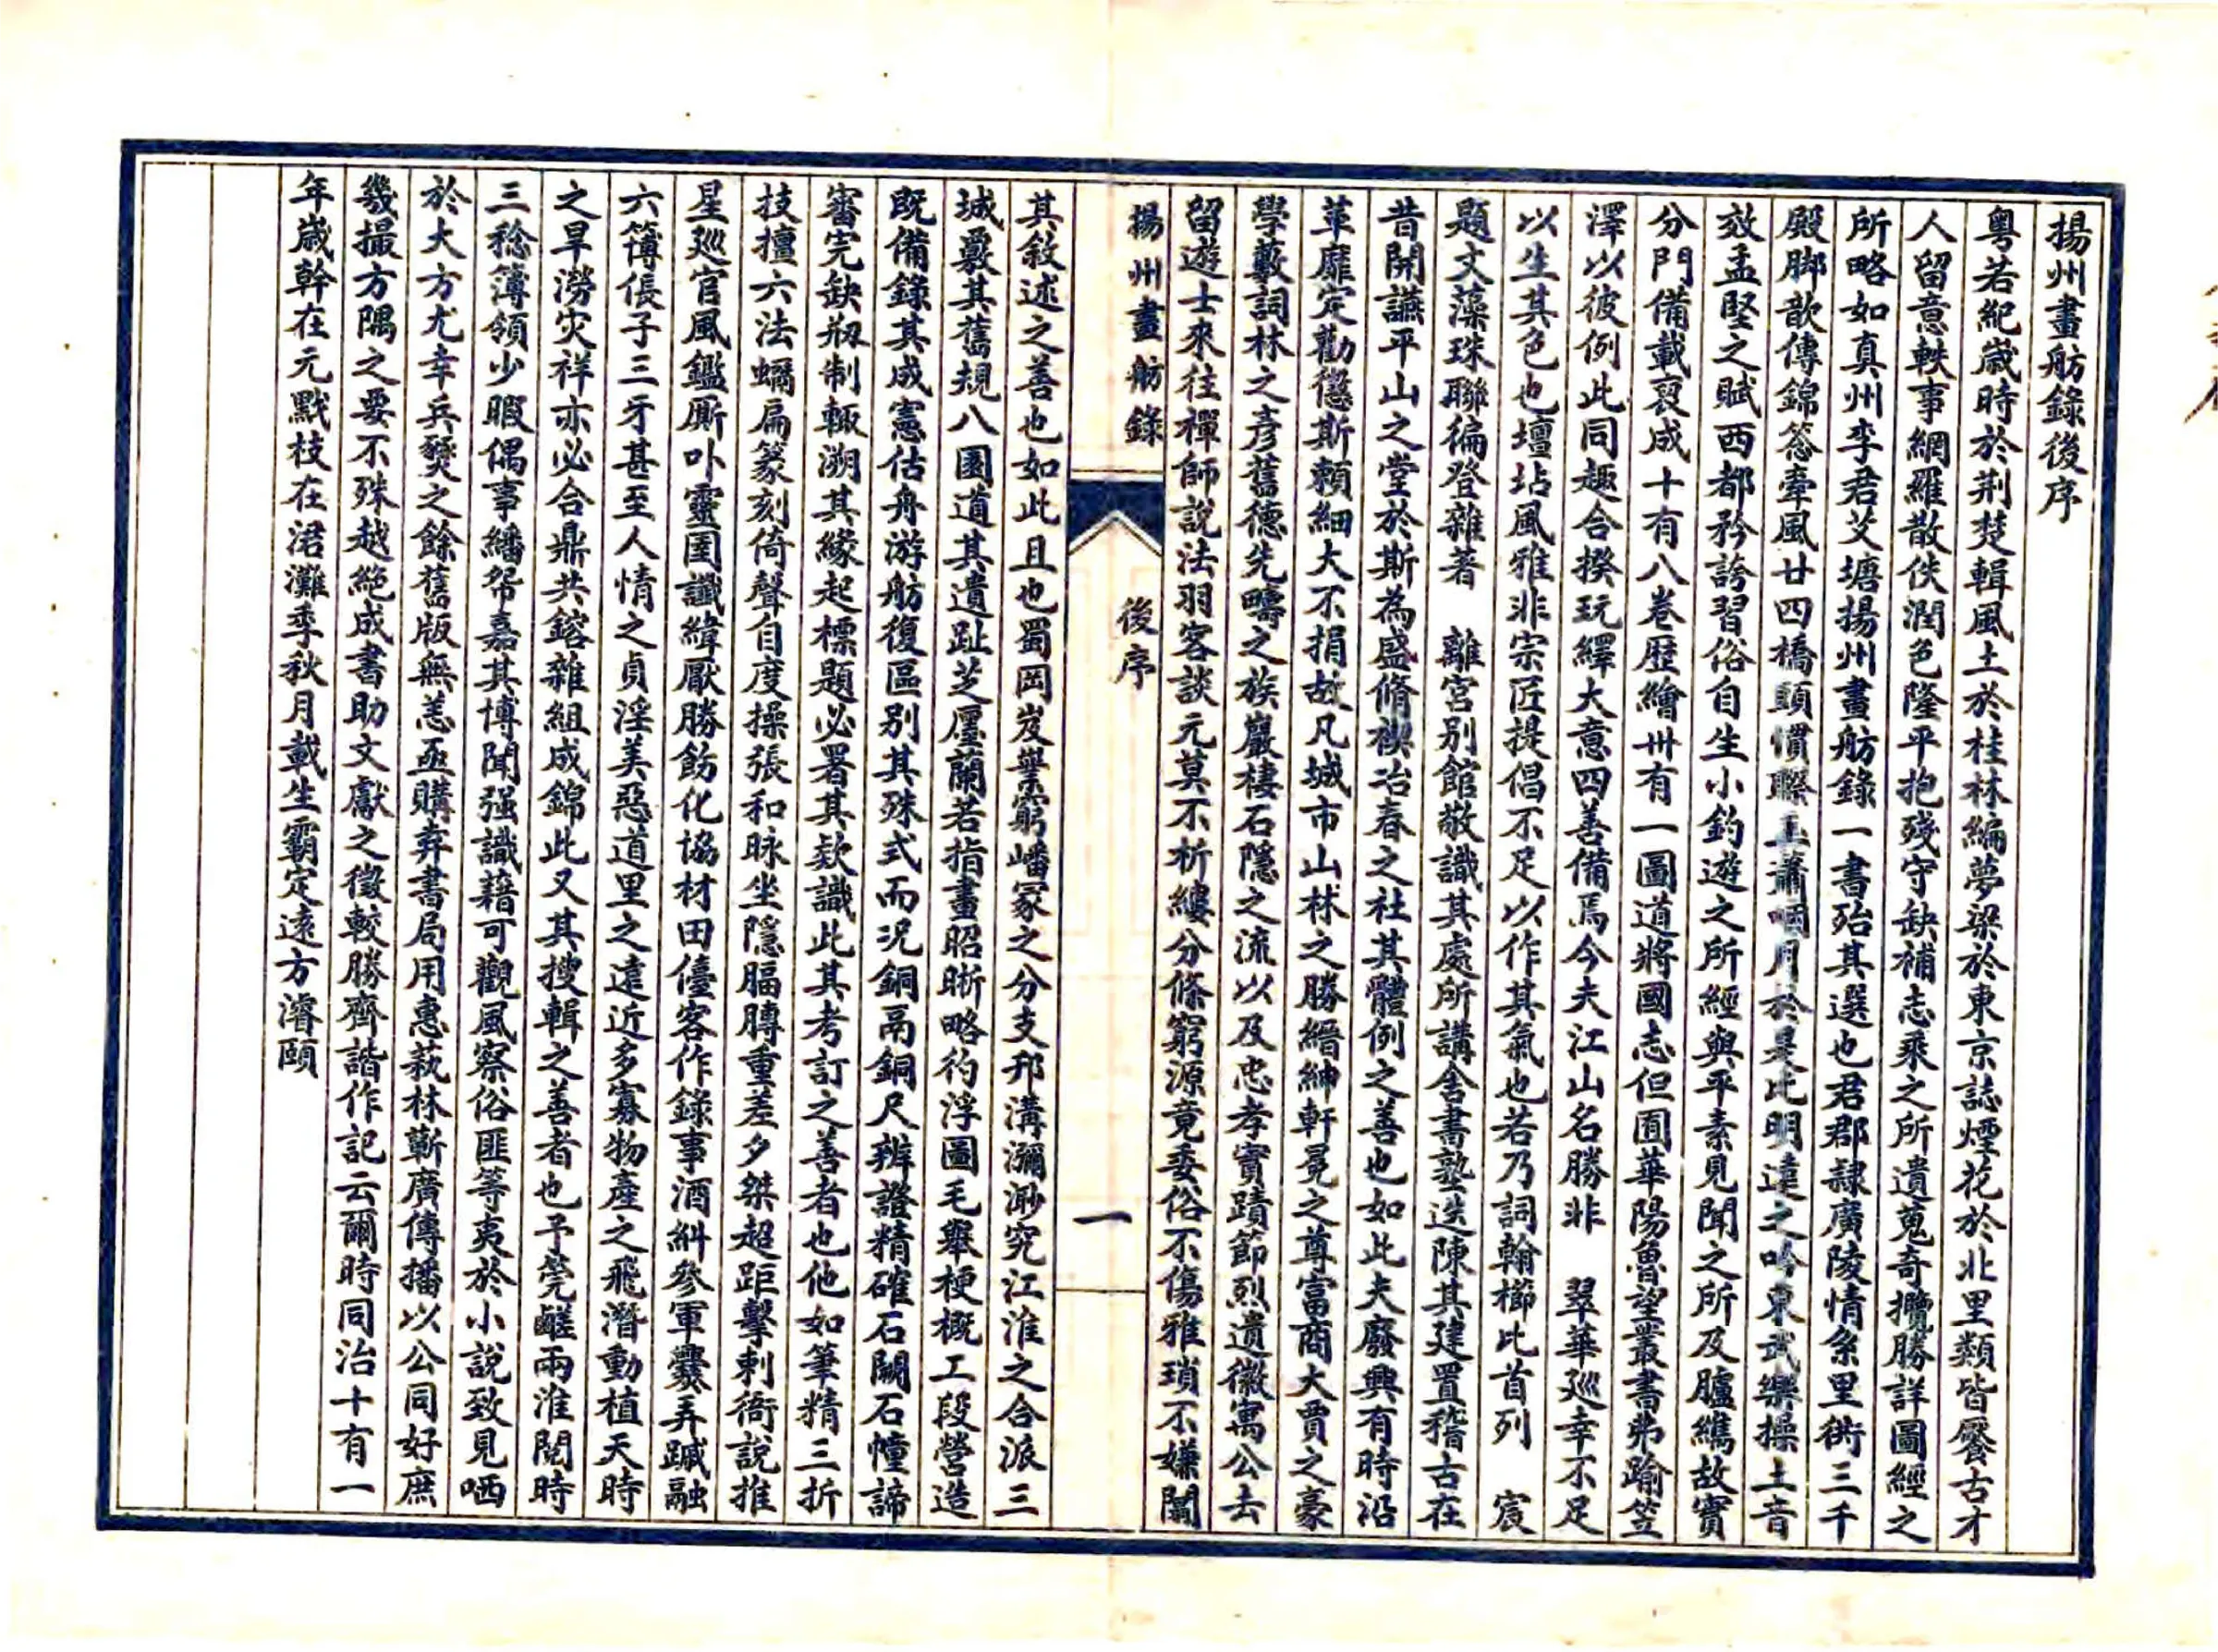 揚州畫舫錄後序
粵若紀歲時於荆楚輯風土於桂林編夢梁於東京誌煙花於北里類皆饜古才
人留意軼事網羅散佚潤色隆平抱殘守缺補志乘之所遺蒐奇攬勝詳圖經之
所略如真州李君艾塘揚州畫舫錄一書殆其選也君郡隸廣陵情系里衖三千
殿脚歆傳錦纜牽風廿四橋頭慣聯玉蕭咽月於是比明遠之吟東武樂操土音
效孟堅之賦西都矜誇習俗自生小釣遊之所經與平素見聞之所及臚纗故實
分門備載裒成十有八卷歷繪卅有一圖道將國志但囿華陽魯望叢書弗踰笠
澤以彼例此同趣合揆玩繹大意四善備焉今夫江山名勝非 翠華巡幸不足
以生其色也壇坫風雅非宗匠提倡不足以作其氣也若乃詞翰櫛比首列 宸
題文藻珠聯徧登雜著 離宮別館敬識其處所講舍書塾迭陳其建置稽古在
昔開讌平山之堂於斯為盛脩禊冶春之社其體例之善也如此夫廢興有時沿
革靡定勸懲斯賴細大不捐故凡城市山林之勝縉紳軒冕之尊富商大賈之豪
學藪詞林之彥舊德先疇之族巖棲石隱之流以及忠孝實蹟節烈遺徽寓公去
留遊士來往禪師說法羽客談元莫不析縷分條窮源竟委俗不傷雅瑣不嫌闒
揚州畫舫錄
後序
一
其敘述之善也如此且也蜀岡岌嶪窮嶓冢之分支邗溝瀰渺究江淮之合派三
城覈其舊規八園道其遺趾芝廛蘭若指畫昭晰略彴浮圖毛舉梗概工段營造
既備錄其成憲估舟游舫復區别其殊式而况銅鬲銅尺辨證精確石闕石幢諦
審完缺剏制輒溯其緣起標題必署其欵識此其考訂之善者也他如筆精三折
技擅六法蠣扁篆刻倚聲自度操張和脉坐隱腷膊重差夕桀超距擊刺衙說推
星巡官風鑑厮卟靈圉讖緯厭勝飭化協材田儓客作錄事酒糾參軍爨弄蹴融
六簿倀子三牙甚至人情之貞淫美惡道里之遠近多寡物產之飛潛動植天時
之旱澇灾祥亦必合鼎共鎔雜組成錦此又其搜輯之善者也予筦鹺兩淮閱時
三稔簿領少暇偶事繙帑嘉其博聞强識藉可觀風察俗匪等夷於小說致見哂
於大方尤幸兵燹之餘舊版無恙亟購弆書局用惠萟林蘄廣傳播以公同好庶
幾撮方隅之要不殊越絕成書助文獻之徵較勝齊諧作記云爾時同治十有一
年歲幹在元黓枝在涒灘季秋月載生霸定遠方濬頤